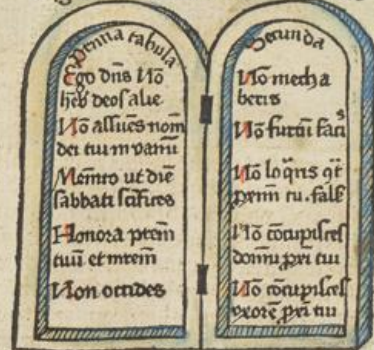 Prima tabula
Ego dns No
heb deos alie
No assues nom
dei tui in vanu
Memto ut die
sabbati scifices
Honora prem
tuu et mrem
Non occides
Secunda
No mecha
beris
No furtu faci
No loqris qt
pxm tu. fals
No cocupisces
domu pxi tui
No cocupisces
vxore pxi tui